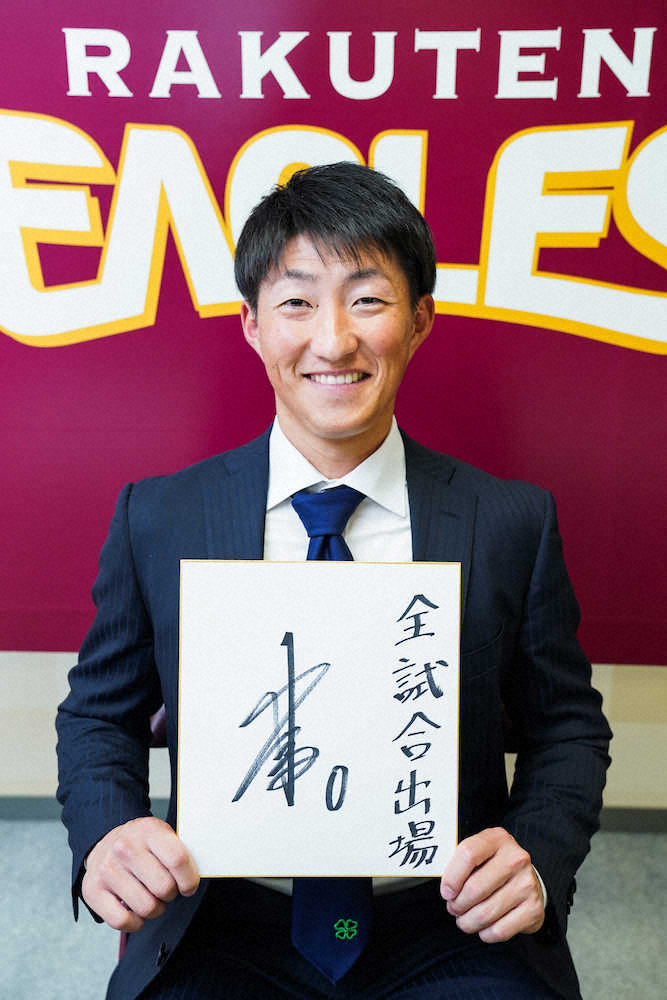 RAKUTEN
EAGLES
全試合出場
0